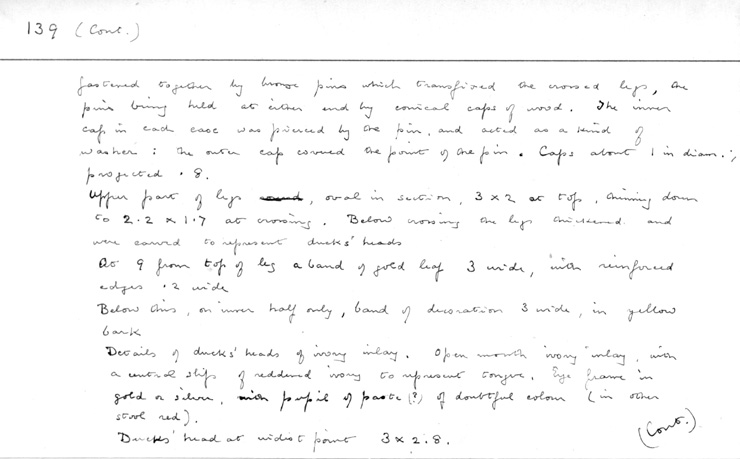 139 (Cont.)
fastened together by bronze pins which transfixed the crossed legs, the
pins being held at either end by conical caps of wood. The inner
cap in each case was pierced by the pin, and acted as a kind of
washer : the outer cap covered the point of the pin. Caps about 1 in diam.;
projected .8.
Upper part of legs, oval in section, 3 x 2 at top, thinning down
to 2.2 x 1.7 at crossing. Below crossing the legs thickened and
were carved to represent ducks' heads
At 9 from top of leg a band of gold leaf 3 wide, with reinforced
edges .2 wide
Below this, on inner half only, band of decoration 3 wide, in yellow
bark
Details of ducks' heads of ivory inlay. Open mouth ivory inlay, with
a central strip of reddened ivory to represent tongue. Eye frame in
gold or silver, with pupil of paste (?) of doubtful colour (in other
stool red).
Ducks' head at widest point 3 x 2.8.
(Cont.)